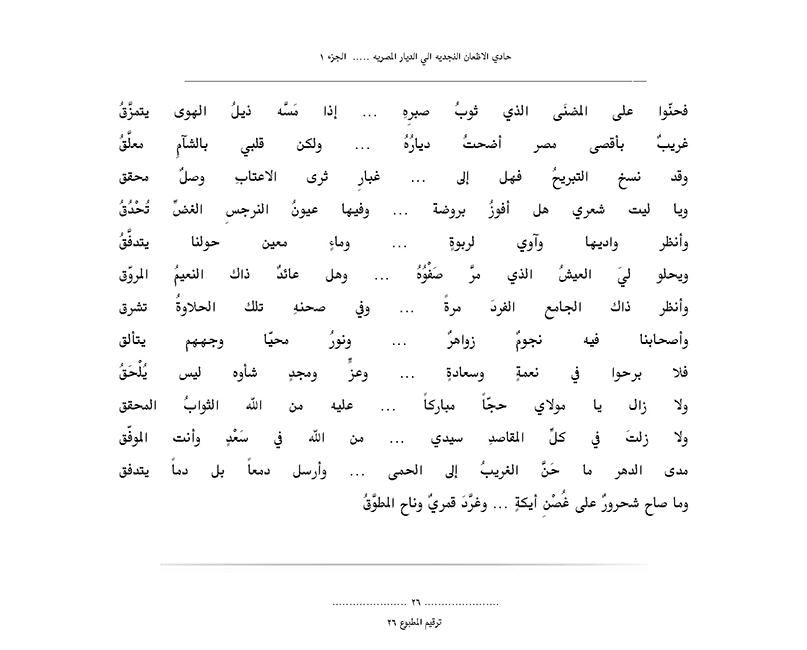 حادي الاظعان النجديه الي الديار المصريه ..... الجزء ١
فحنّوا على المضنَى الذي ثوبُ صبرِهِ ... إذا مَسَّه ذيلُ الهوى يتمزَّقُ
غريبٌ بأقصى مصر أضحتُ ديارُهُ ... ولكن قلبي بالشآمِ معلَّقُ
وقد نسخ التبريحُ فهل إلى ... غبارِ ثرى الاعتابِ وصلٌ محقق
ويا ليت شعري هل أفوزُ بروضة ... وفيها عيونُ النرجسِ الغضِّ تُحْدُقُ
وأنظر واديها وآوي لربوةِ ... وماءٍ معين حولنا يتدفَّقُ
ويحلو ليَ العيشُ الذي مرَّ صَفْوُهُ ... وهل عائدٌ ذاك النعيمُ المروّق
وأنظر ذاك الجامع الفردَ مرةً ... وفي صحنهِ تلك الحلاوةُ تشرق
وأصحابنا فيه نجومٌ زواهرٌ ... ونورُ محيّا وجههم يتألق
فلا برحوا في نعمةٍ وسعادةٍ ... وعزٍّ ومجدٍ شأوه ليس يُلْحَقُ
ولا زال يا مولاي حجّاً مباركاً ... عليه من الله الثوابُ المحقق
ولا زلتَ في كلِّ المقاصدِ سيدي ... من الله في سَعْدٍ وأنت الموفّق
مدى الدهر ما حَنَّ الغريبُ إلى الحمى ... وأرسل دمعاً بل دماً يتدفق
وما صاح شحرورٌ على غُصْنِ أيكةٍ ... وغرَّدَ قمريٌ وناح المطوَّقُ
...................... ٢٦ ......................
ترقيم المطبوع ٢٦